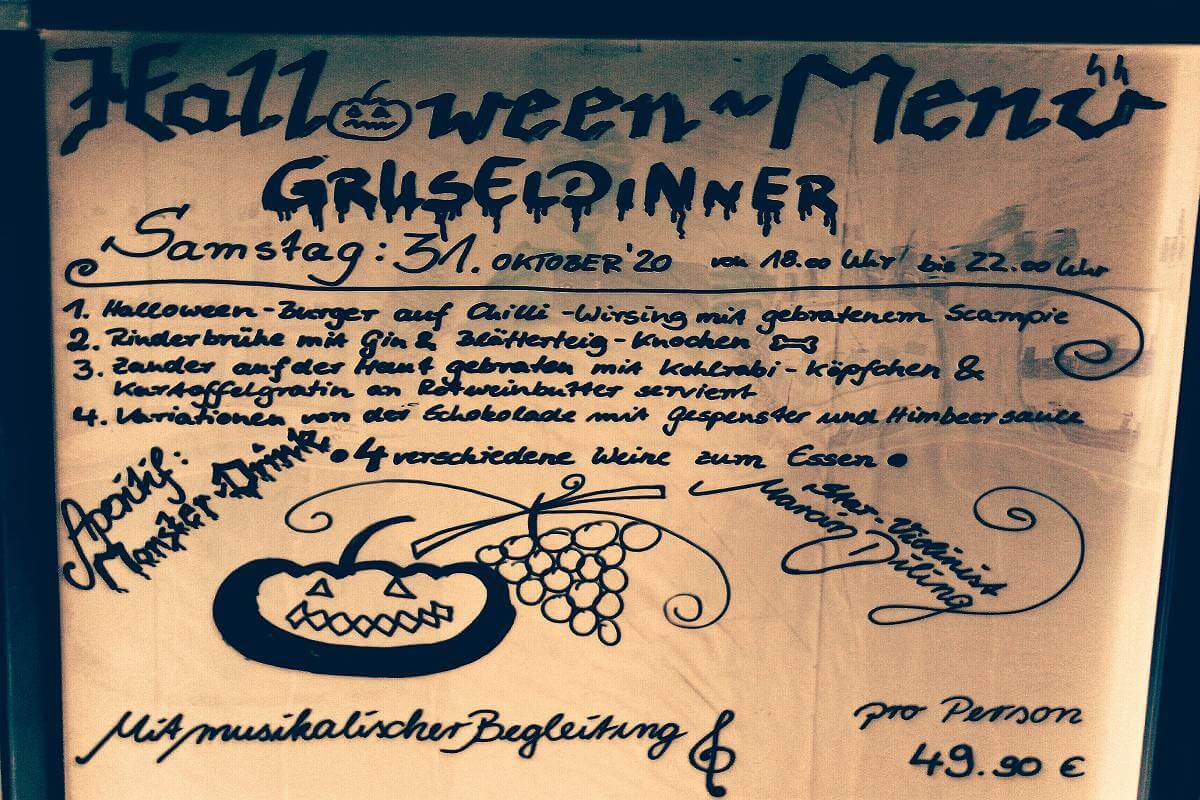 Halloween~Menü
GRUSELDINNER
Samstag: 31. OKTOBER '20 von 18.00 Uhr bis 22.00 Uhr
1. Halloween-Burger auf Chilli-Wirsing mit gebratenem Scampie
2. Rinderbrühe mit Gin & Blätterteig-Knochen
3. Zander auf der Haut gebraten mit Kohlrabi-Köpfchen &
Kartoffelgratin an Rotweinbutter serviert
4. Variationen von der Schokolade mit Gespenster und Himbeersauce
Aperitif:
Monster-Drink
• 4 verschiedene Weine zum Essen •
Star-Violinist
Maran Diling
Mit musikalischer Begleitung
pro Person
49.90 €